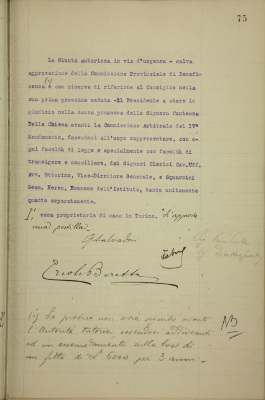 75
La Giunta autorizza in via d'urgenza e salva
approvazione della Commissione Provinciale di Benefi-
cenza e con riserva di riferirne al Consiglio nella
sua prima prossima seduta -il Presidente a stare in
giudizio nella causa promossa dalla Signora Contessa
Della Chiesa avanti la Commissione Arbitrale del IV°
Mandamento, facendosi all'uopo rappresentare, con o-
gni facoltà di legge e specialmente con facoltà di
transigere e conciliare, dai Signori Clerici Cav.Uff.
Ottorino, Vice-Direttore Generale, e
Geom. Economo dell'Istituto, tanto unitamente
quanto separatamente.
casa proprietaria di case in Torino. Si approva
una postilla.
Ercole Beretta
NB
(1) La pratica non avrà mondo avanti
l'Autorità tutoria essendosi addivenuti
ad un accomodamento sulla base di
un fitto di L. 6000 per 3 anni.